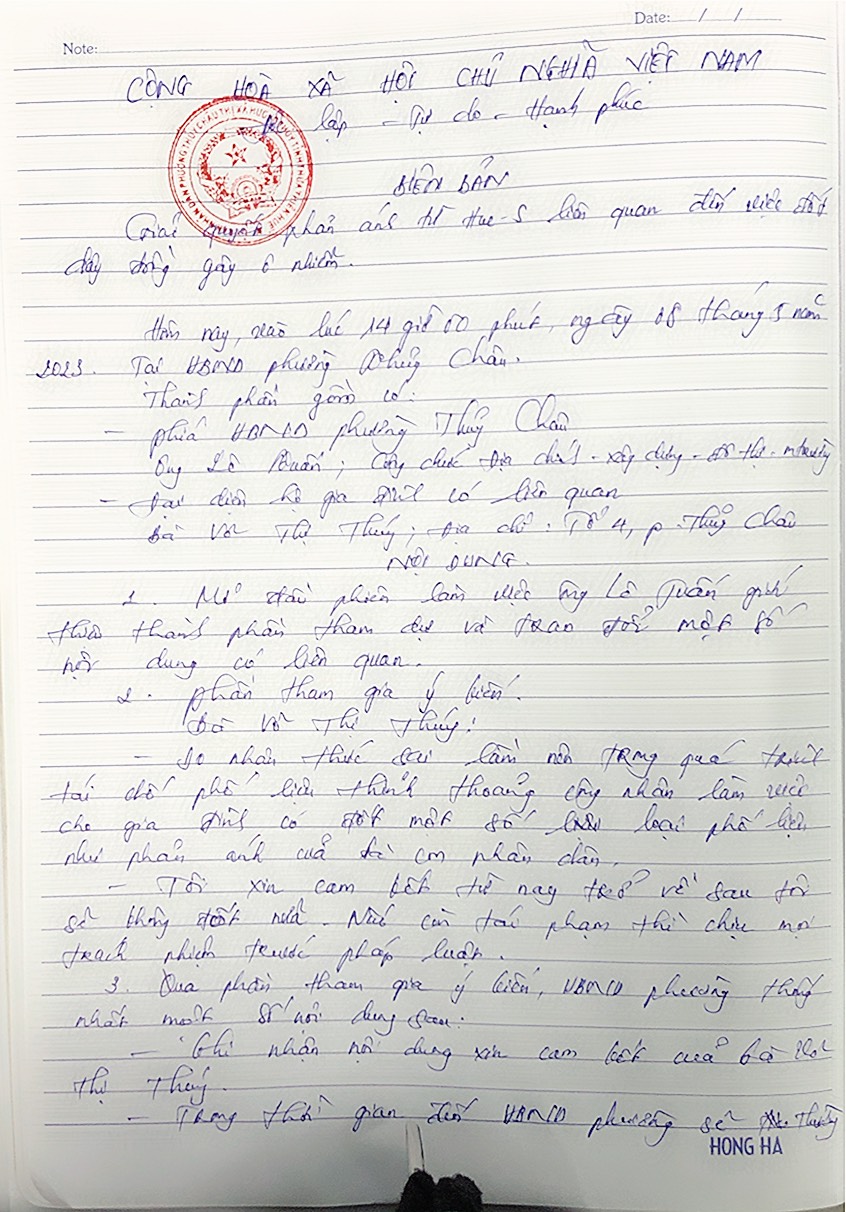 Date: / /
Note:
CỘNG HOÀ XÃ HỘI CHỦ NGHĨA VIỆT NAM
lập - Tự do - Hạnh phúc
BIÊN BẢN
Giải quyết phản ánh từ Hue-S liên quan đến việc đốt
dây đồng gây ô nhiễm.
Hôm nay, vào lúc 14 giờ 00 phút, ngày 08 tháng 5 năm
2023. Tại UBND phường Thuỷ Châu.
Thành phần gồm có:
- phía UBND phường Thuỷ Châu
Ông Lê Tuấn; Công chức Địa chính - xây dựng - đô thị - mtrường
- Đại diện hộ gia đình có liên quan
Bà Võ Thị Thuý; Địa chỉ: Tổ 4, p. Thuỷ Châu
NỘI DUNG.
1. Mở đầu phiên làm việc ông Lê Tuấn giới
thiệu thành phần tham dự và trao đổi một số
nội dung có liên quan.
2. phần tham gia ý kiến.
Bà Võ Thị Thuý:
- Do nhận thức sai lầm nên trong quá trình
tái chế phế liệu thỉnh thoảng công nhân làm việc
cho gia đình có đốt một số loại phế liệu
như phản ánh của bà con nhân dân.
- Tôi xin cam kết từ nay trở về sau tôi
sẽ không đốt nữa. Nếu còn tái phạm thì chịu mọi
trách nhiệm trước pháp luật.
3. Qua phần tham gia ý kiến, UBND phường thống
nhất một số nội dung sau:
- Ghi nhận nội dung xin cam kết của bà Võ
Thị Thuý.
- Trong thời gian đến UBND phường sẽ thường
HONG HA
ỦY BAN NHÂN DÂN PHƯỜNG THỦY CHÂU THỊ XÃ HƯƠNG THỦY TỈNH THỪA THIÊN HUẾ